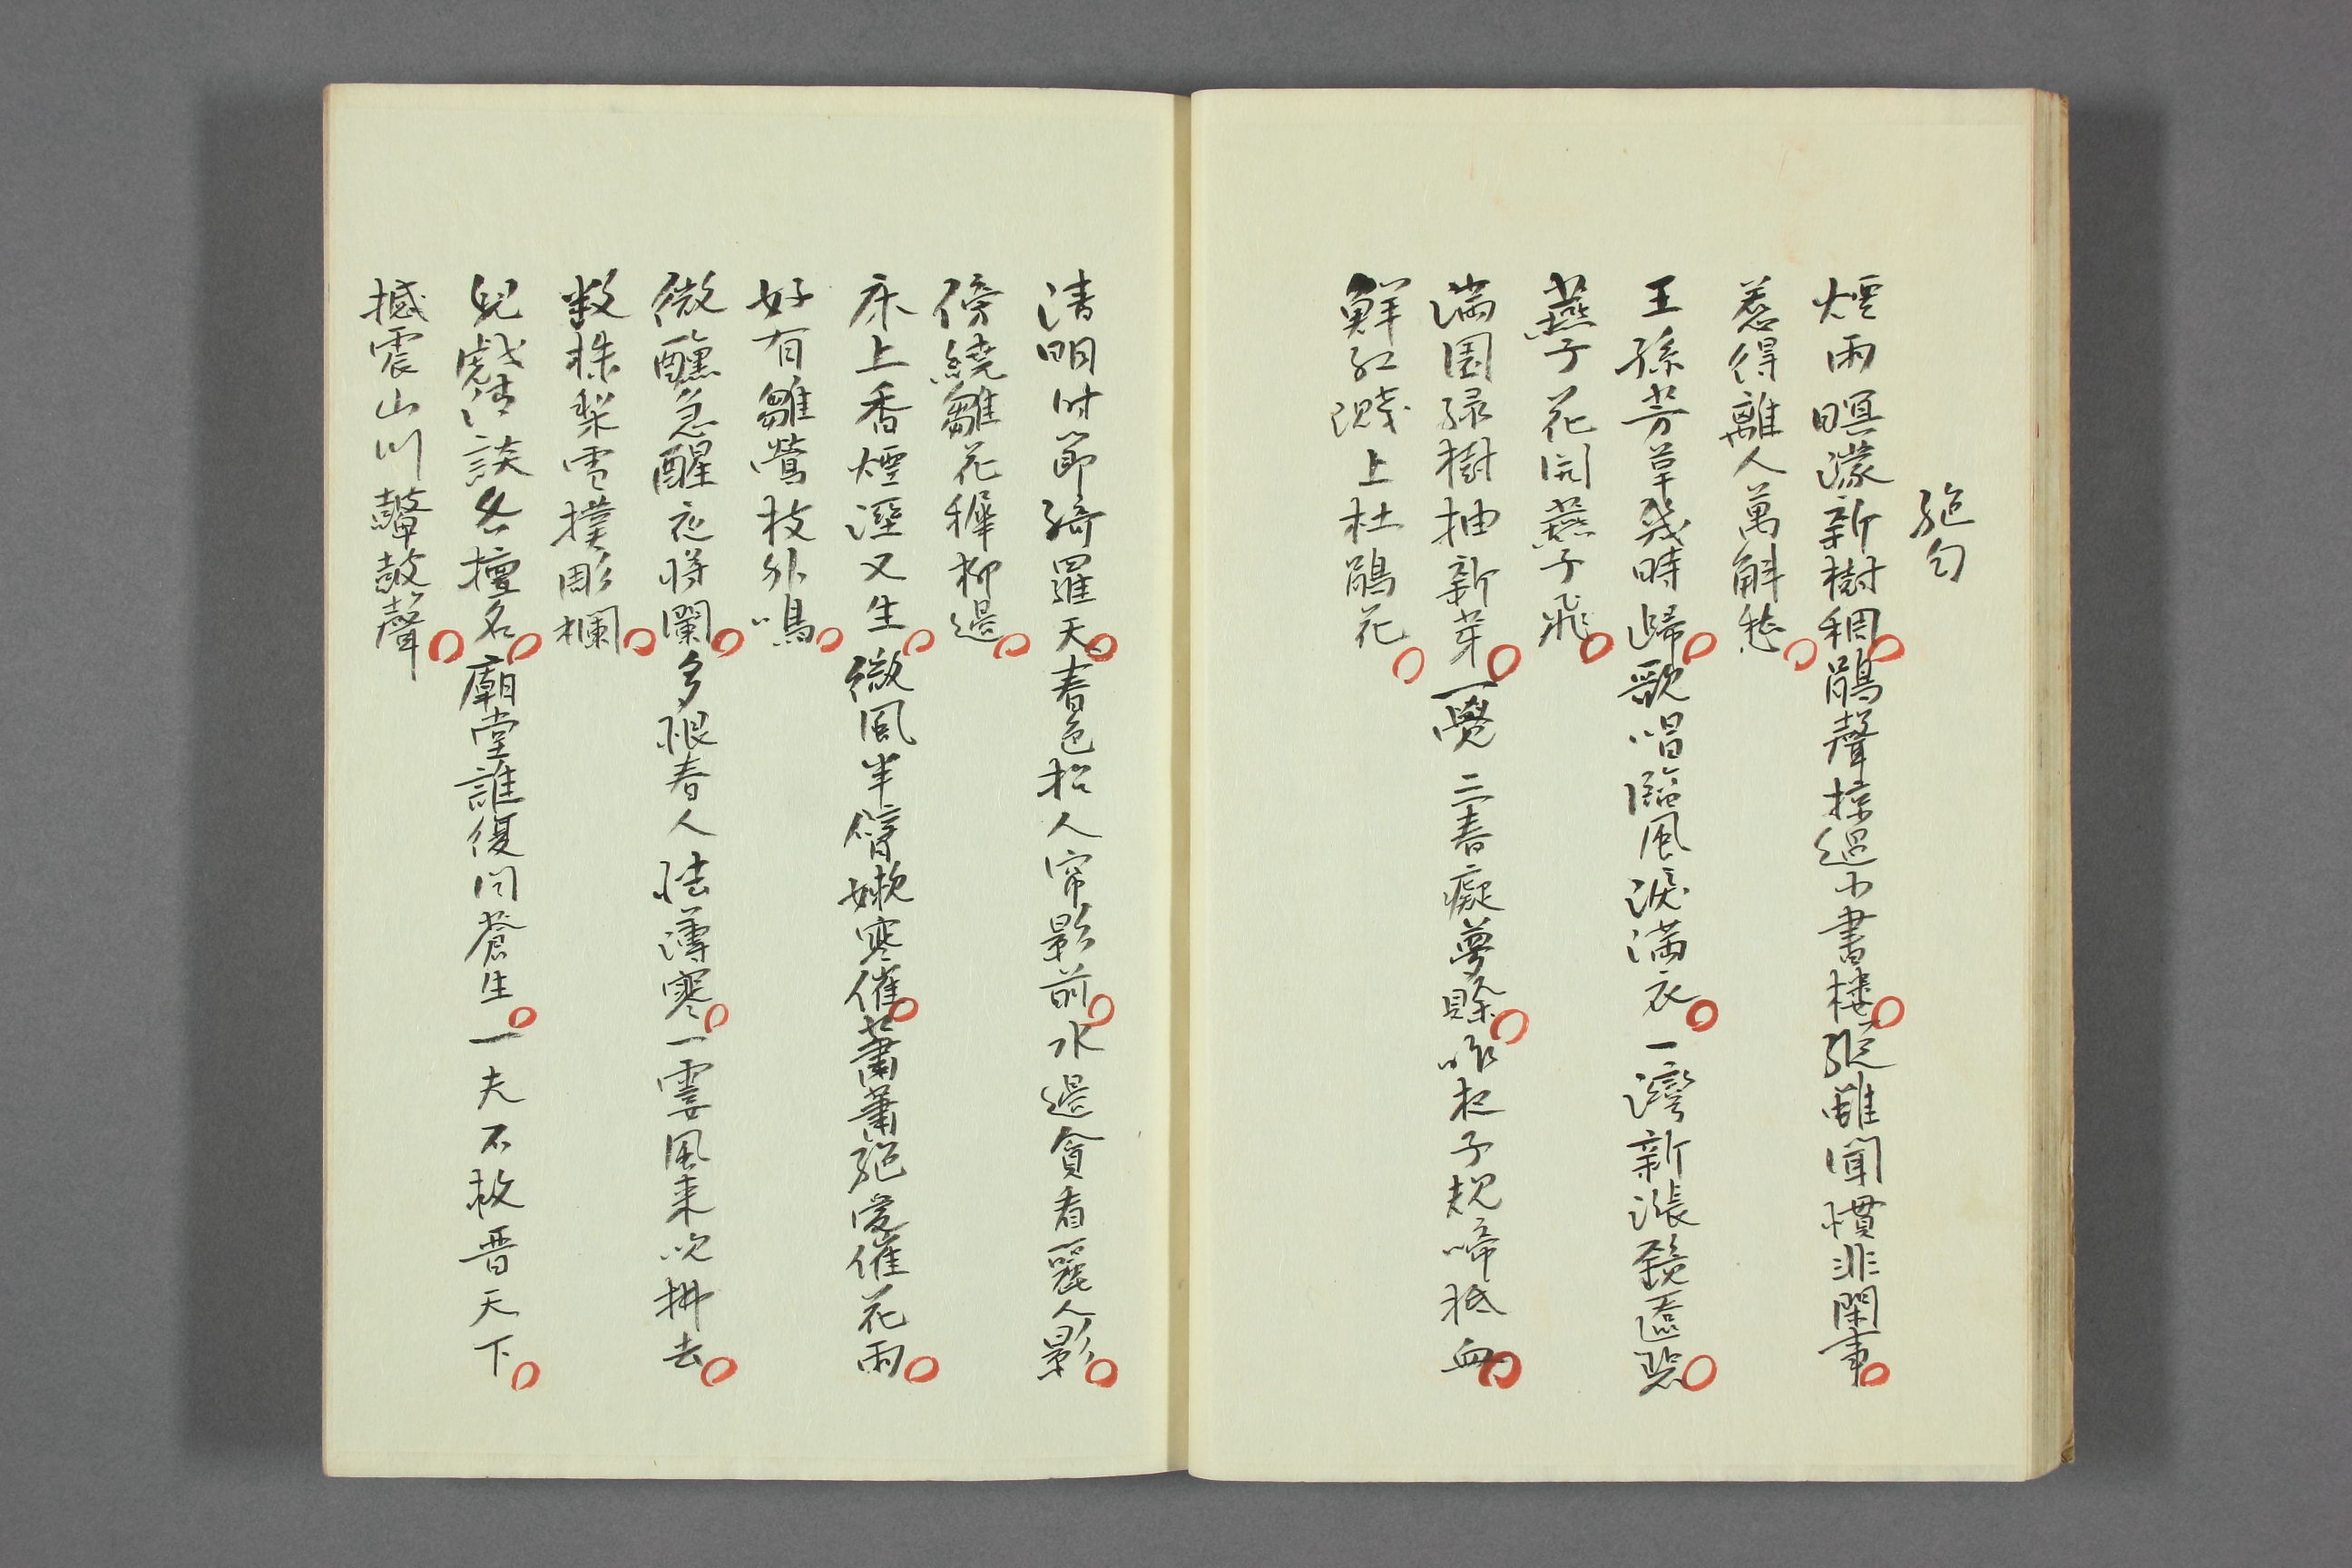 絕句
煙雨暝濛新樹稠鵑聲掠過小書樓縱雖聞慣非閑事
惹得離人萬斛愁
王孫芳草幾時歸歌唱臨風淚滿衣一灣新漲鏡匳碧
燕子花開燕子飛
滿園綠樹抽新芽一覺三春癡夢賒昨夜子規啼秪血
鮮紅濺上杜鵑花
清明時節綺羅天春色招人帘影前水邊貪看麗人影
傍繞雛花穉柳邊
床上香煙溼又生微風半臂嫩寒催蕭蕭絕愛催花雨
好有雛鶯枝外鳴
微醺急醒夜將闌多恨春人怯薄寒一霎風來吹拂去
數株梨雪撲彫欄
兒戲清談各擅名廟堂誰復問蒼生一夫不救晋天下
撼震山川鼙鼓聲